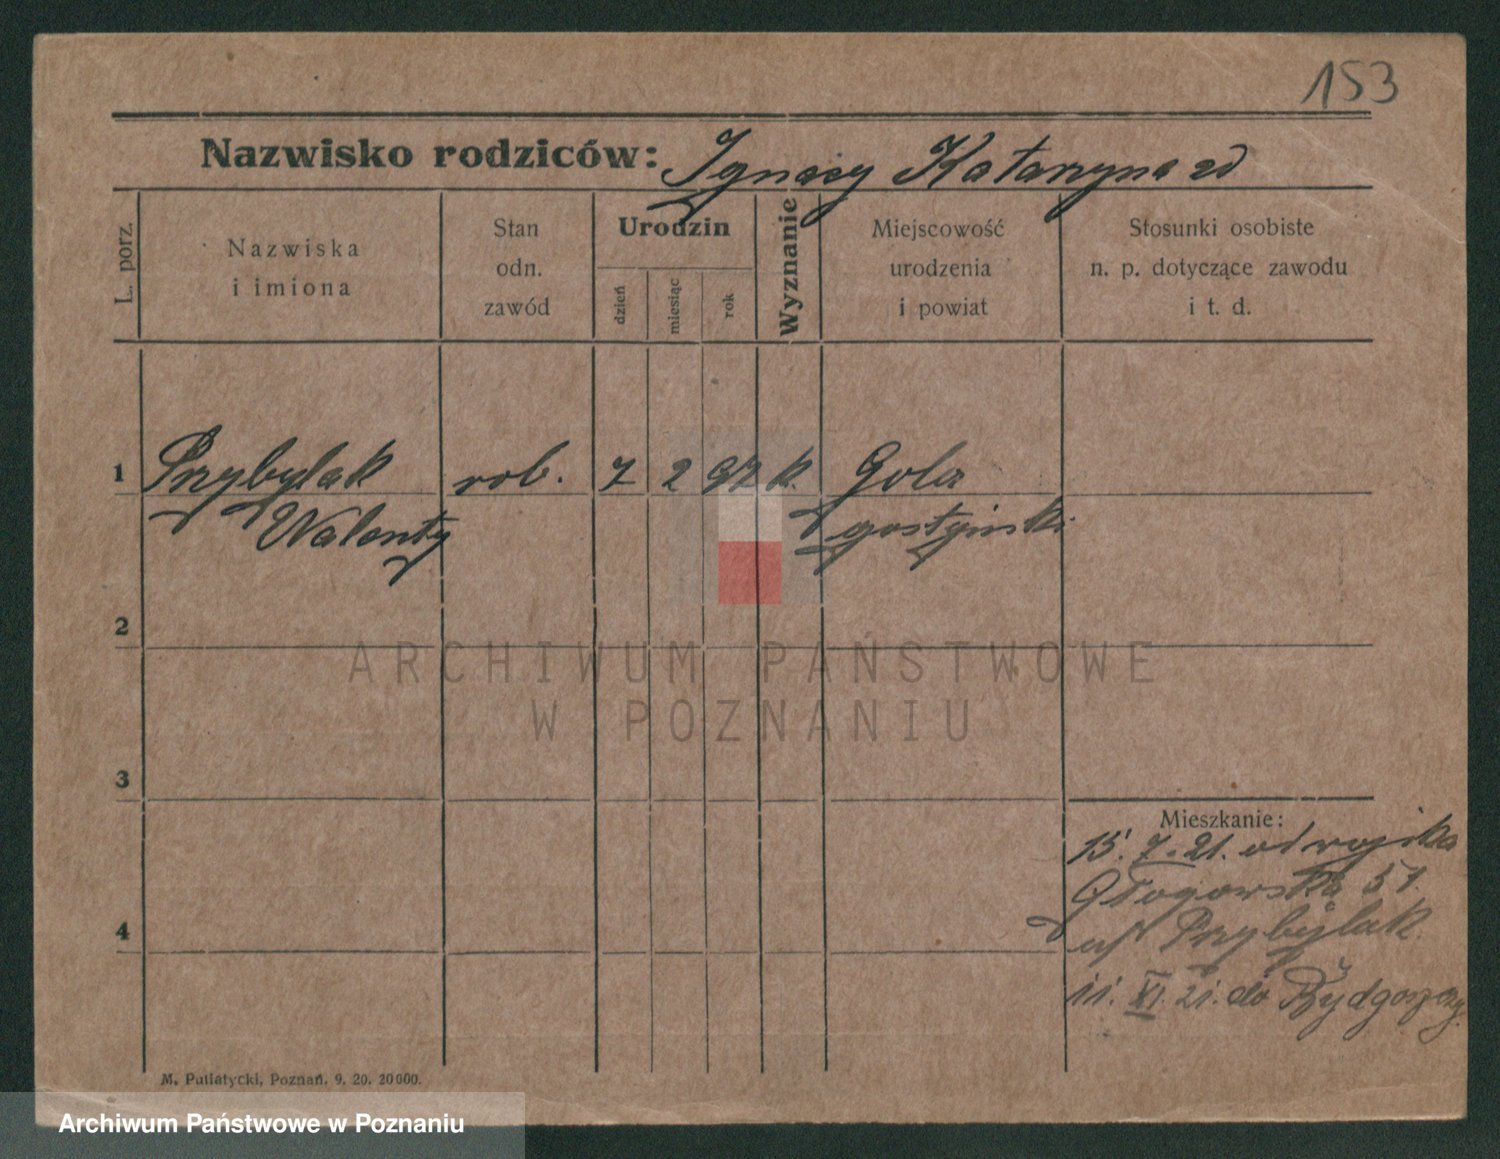 153
Nazwisko rodziców: Ignacy Katarzyna
L. porz.
Nazwiska
i imiona
Stan
odn.
zawód
Urodzin
dzień
miesiąc
rok
Wyznanie
Miejscowość
urodzenia
i powiat
Stosunki osobiste
n. p. dotyczące zawodu
i t. d.
1 Przybylak rob. 7 2 97 k. Gola
Walenty gostyński
2
ARCHIWUM PAŃSTWOWE
W POZNANIU
3
Mieszkanie:
15. 7. 21. od wojska
Głogowska 51.
Przybylak
4
11. XI. 21. do Bydgoszczy
M. Putiatycki, Poznań. 9. 20. 20000.
Archiwum Państwowe w Poznaniu